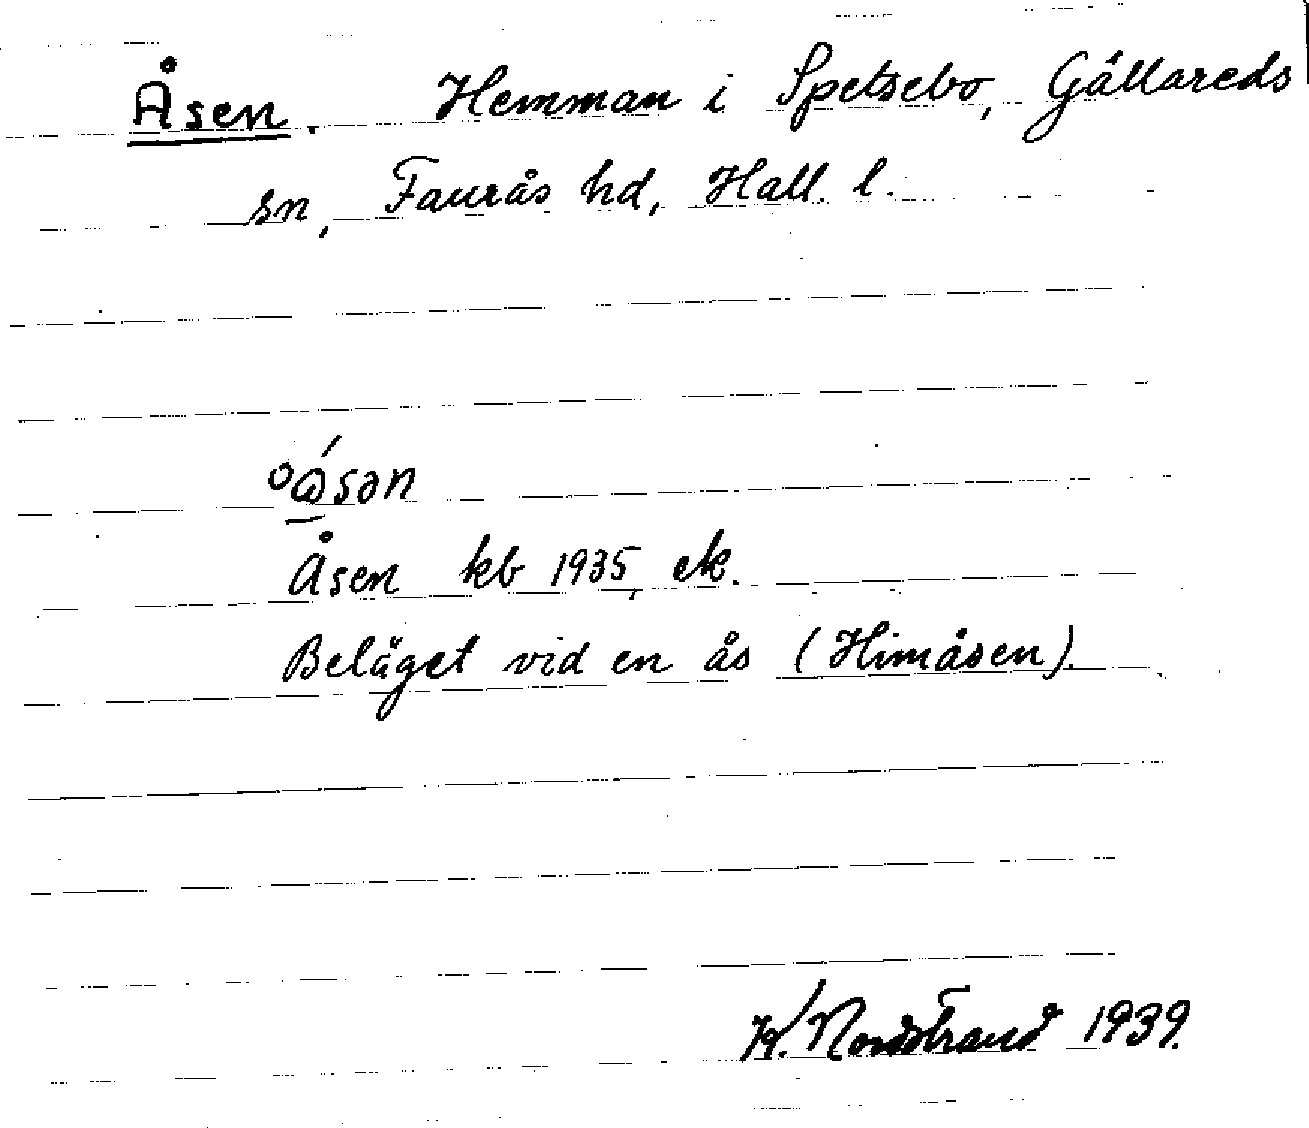 Åsen. Hemman i Spetsebo, Gällareds
sn, Faurås hd, Hall. l.
åsen kb 1935, ek.
Beläget vid en ås (Himåsen).
Nordstrand 1939.